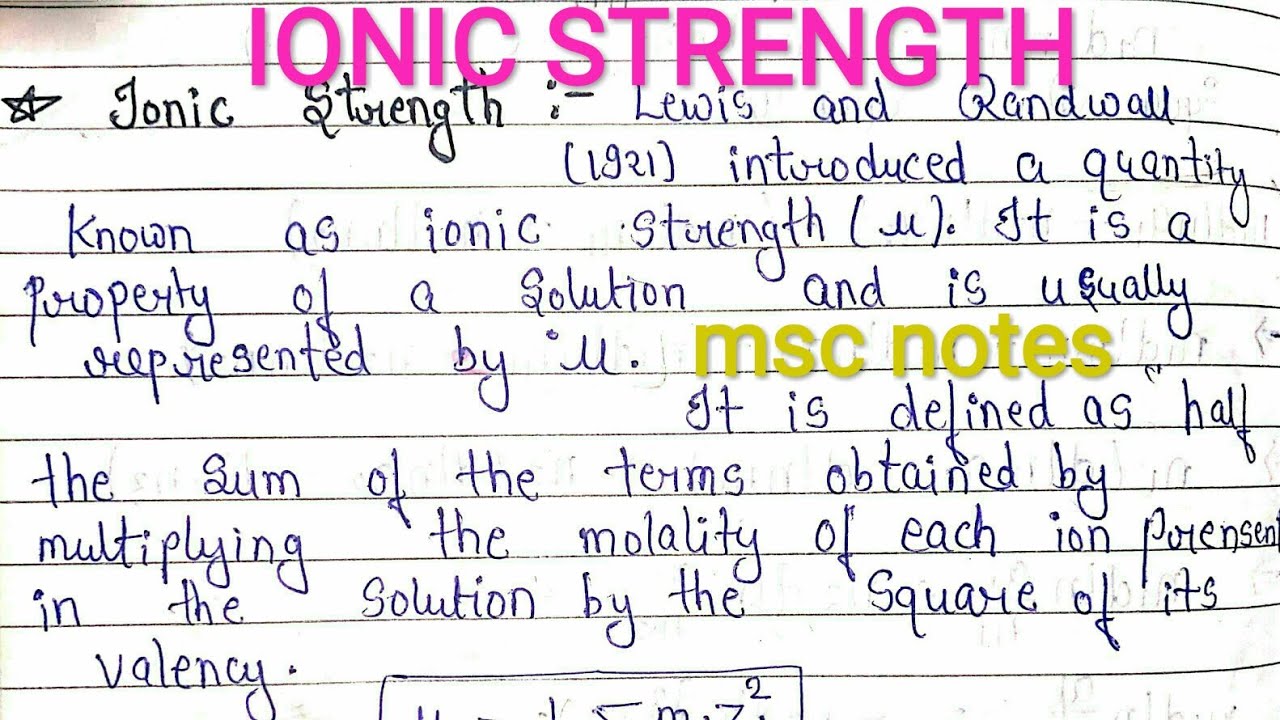 IONIC STRENGTH
☆ Ionic Strength :- Lewis and Randwall
(1921) introduced a quantity
Known as ionic Strength (μ). It is a
property of a Solution and is usually
represented by μ.
msc notes
It is defined as "half
the Sum of the terms obtained by
multiplying the molality of each ion prensent
in the Solution by the Square of its
valency.